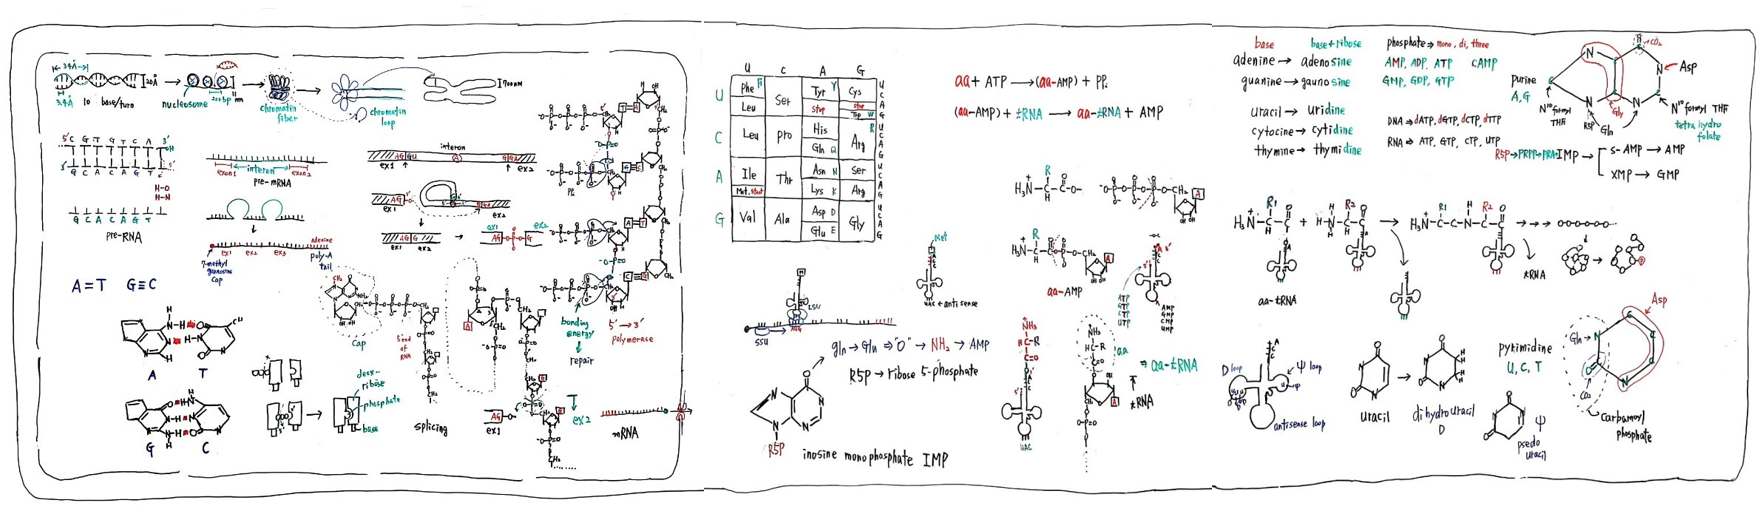 34Å
20Å
3.4Å
10 base/turn
nucleosome
200bp
11nm
chromatin
fiber
chromatin
loop
1700nm
5' C G T G T C A 3'
OH
3' G C A C A G T 5'
H-O
H-N
G C A C A G T
pre-RNA
exon1
interon
exon2
pre-mRNA
7-methyl
guanosine
cap
ex1 ex2 ex3
adenine
poly-A
tail
interon
AG GU
ex1
ex2
AG
ex1
ex2
AG G
ex1 ex2
ex1 ex2
AG P G
A=T G≡C
A T
G C
Cap
5'end
of
RNA
deox-
ribose
phosphate
base
splicing
AG
ex1
ex2
mRNA
PPi
bonding
energy
repair
5' → 3'
polymerase
U C A G
U
Phe
Leu
Ser
Tyr Y
stop
Cys
stop
Trp W
C
Leu
Pro
His
Gln Q
Arg R
A
Ile
Met. start
Thr
Asn N
Lys K
Ser
Arg
G
Val
Ala
Asp D
Glu E
Gly
U
C
A
G
U
C
A
G
U
C
A
G
U
C
A
G
SSU
LSU
AUG
Met
UAC ← antisense
gln → Glu ⇒ "O" → NH2 → AMP
R5P → ribose 5-phosphate
R5P
inosine monophosphate IMP
aa + ATP → (aa-AMP) + PPi
(aa-AMP) + tRNA → aa-tRNA + AMP
aa-AMP
ATP
GTP
CTP
UTP
AMP
GMP
CMP
UMP
UAC
aa
tRNA
⇒ aa-tRNA
base base+ribose phosphate ⇒ mono, di, three
adenine → adenosine AMP, ADP, ATP cAMP
guanine → guanosine GMP, GDP, GTP
uracil → uridine
cytocine → cytidine
thymine → thymidine
DNA → dATP, dGTP, dCTP, dTTP
RNA → ATP, GTP, CTP, UTP
purine
A,G
CO2
Asp
Gly
N10 formyl
THF
R5P
Gln
N10 formyl THF
tetrahydro
folate
R5P → PRPP → PRA → IMP →
S-AMP → AMP
XMP → GMP
aa-tRNA
tRNA
D loop
Ψ loop
antisense loop
uracil
dihydrouracil
D
pyrimidine
U, C, T
Ψ
psedo
uracil
Asp
Gln
CO2
Carbamoyl
phosphate